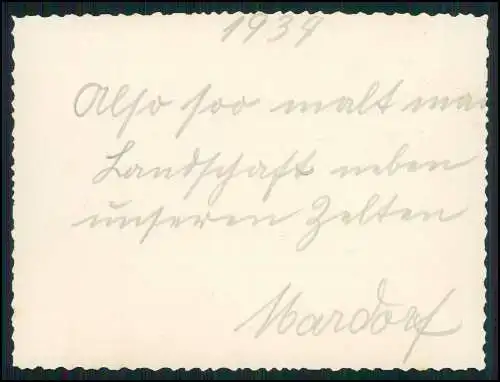 1939
Also soo malt man
Landschaft neben
unseren Zelten
Mardorf